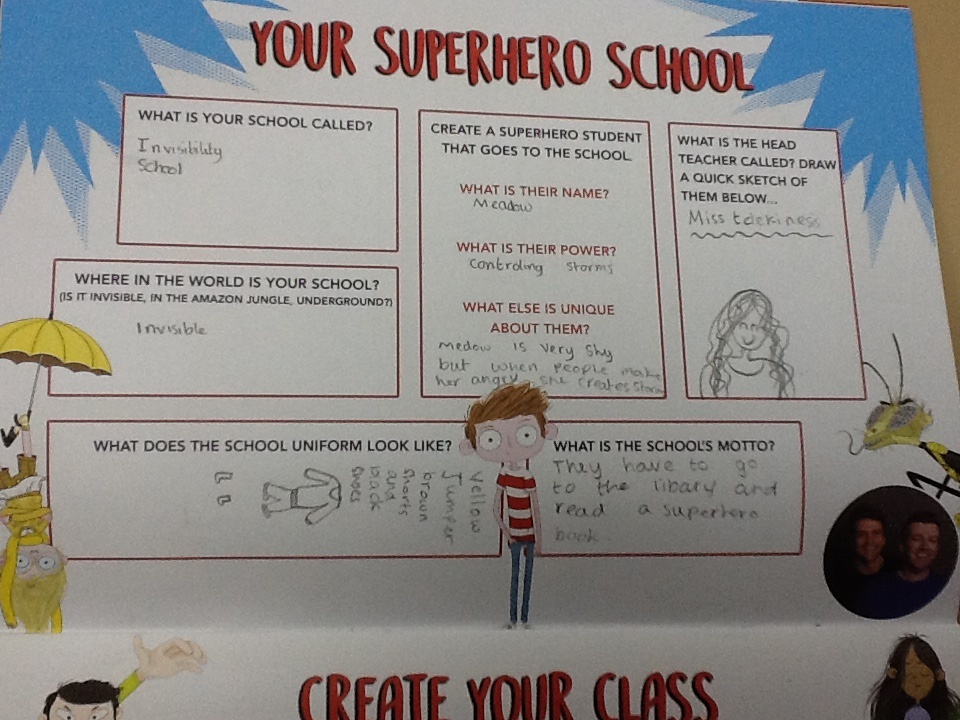 YOUR SUPERHERO SCHOOL
WHAT IS YOUR SCHOOL CALLED?
Invisibility
School
WHERE IN THE WORLD IS YOUR SCHOOL?
(IS IT INVISIBLE, IN THE AMAZON JUNGLE, UNDERGROUND?)
Invisible
CREATE A SUPERHERO STUDENT
THAT GOES TO THE SCHOOL.
WHAT IS THEIR NAME?
Meadow
WHAT IS THEIR POWER?
Controling storms
WHAT ELSE IS UNIQUE
ABOUT THEM?
Medow is very shy
but when people make
her angry she creates
WHAT IS THE HEAD
TEACHER CALLED? DRAW
A QUICK SKETCH OF
THEM BELOW...
Miss
WHAT DOES THE SCHOOL UNIFORM LOOK LIKE?
Yellow
Jumper
brown
shorts
and
black
shoes
WHAT IS THE SCHOOL'S MOTTO?
They have to go
to the libary and
read a superhero
book.
CREATE YOUR CLASS